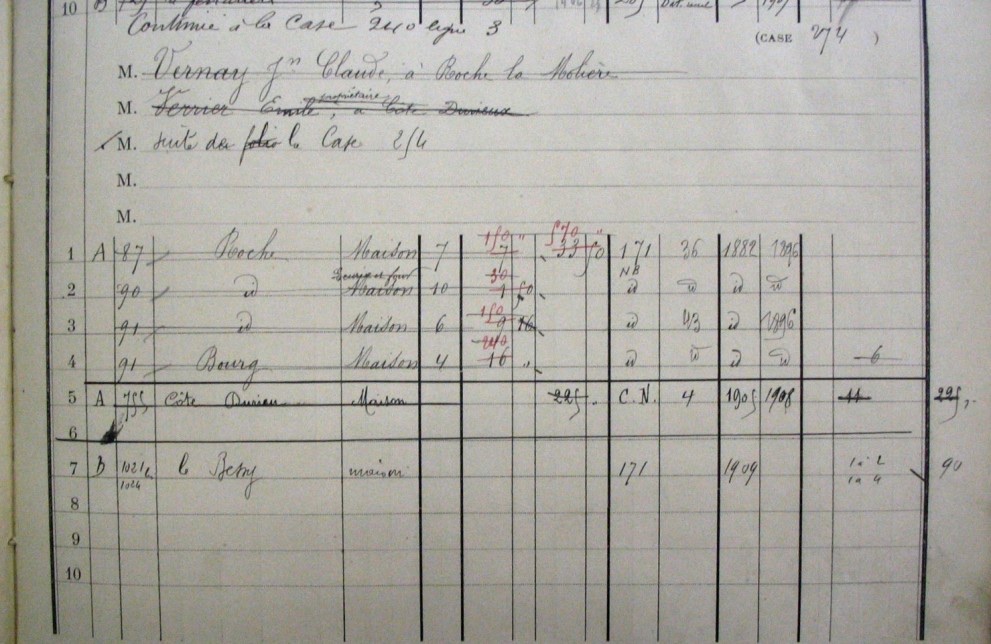 10 B
Continué à la Case 240 ligne 3
(CASE 274 )
M. Vernay Jn Claude, à Roche la Molière
M. Verrier Emile, propriétaire, à Côte Durieux
M. suite de folio la Case 254
M.
M.
1 A 87 Roche Maison 7 150 " 7 570 " 33 50 171 36 1882 1896
2 90 id Maison 10 30 1 50 NB id id id id
3 91 id Maison 6 150 9 16 id 43 id 1896
4 91 Bourg Maison 4 240 16 " id id id id 6
5 A 755 Côte Durieu Maison 225 . C.N. 4 1905 1908 11 225
6
7 B 1024 le Bessy maison 171 1909 1 à 2 1 à 4 90
8
9
10